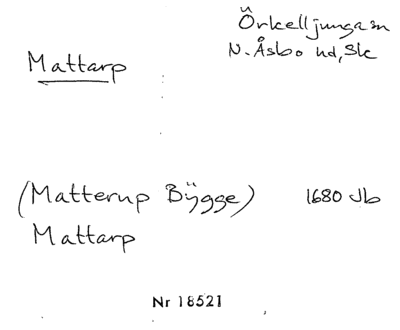 Örkelljunga sn
Mattarp
N. Åsbo hd, Sk
(Matterup Bÿgge) 1680 Jb
Mattarp
Nr 18521